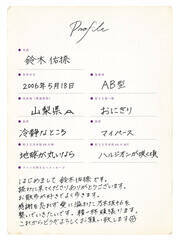 Profile
鈴木 佑捺
2006年5月18日
AB型
山梨県
おにぎり
冷静なところ
マイペース
地球が丸いなら
ハルジオンが咲く頃
はじめまして 鈴木佑捺です。
読んで下さりありがとうございます。
お散歩が好きでよく歩きます。
感謝を忘れず愛に溢れた乃木坂46を
繋いでいきたいです。精一杯頑張ります。
これからどうぞよろしくお願い致します